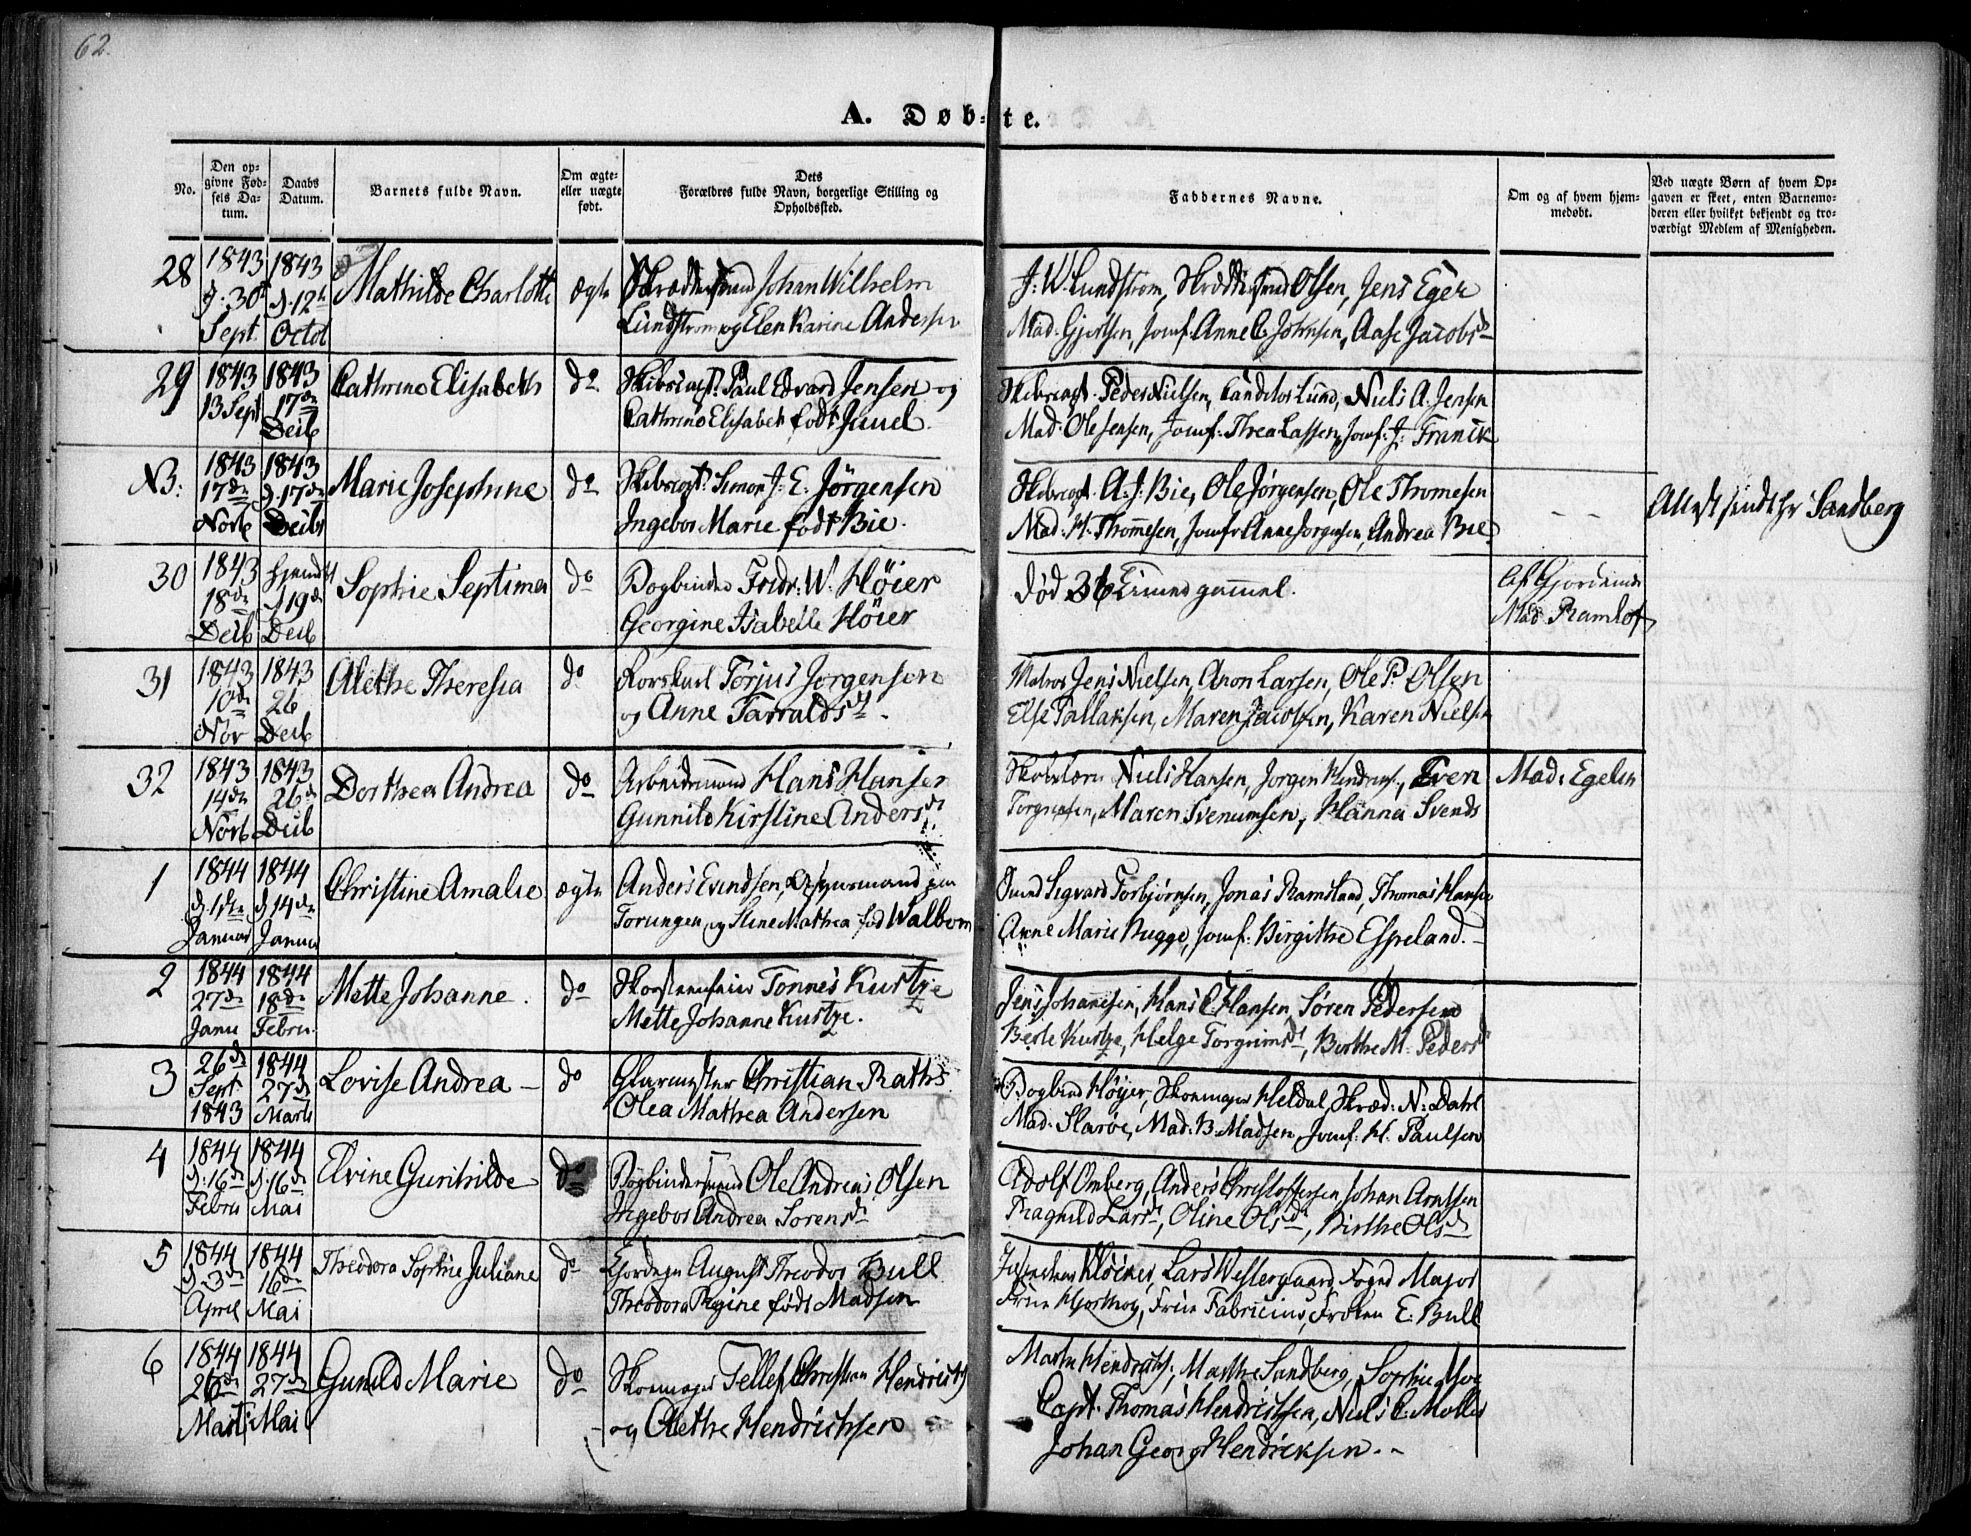 62.
A. Døb-te.
No.
Den op-
givne Fød-
sels Da-
tum.
Daabs
Datum.
Barnets fulde Navn.
Om ægte-
eller uægte
født.
Dets
Forældres fulde Navn, borgerlige Stilling og
Opholdssted.
Faddernes Navne.
Om og af hvem hjem-
medøbt.
Ved uægte Børn af hvem Op-
gaven er skeet, enten Barnemo-
deren eller hvilket bekjendt og tro-
værdigt Medlem af Menigheden.
28
1843
d. 30t
Sept.
1843
d. 12t
Octob
Mathilde Charlotte
ægte
Skræddersvend Johan Wilhelm
Lundstrom og Elen Karine Andersen
J. W. Lundstrom, Skræddersvend Olsen, Jens Eger
Mad. Gjertsen, Jomf. Anne C. Johnsen, Aase Jacobsd
29
1843
13 Sept
1843
17de
Decb
Cathrine Elisabeth
do
Skibscapt. Paul Edvard Jensen og
Cathrine Elisabeth født Juuel.
Skibscapt. Peder Nielsen, Lund, Niels A. Jensen
Mad. Ole Jensen, Jomf. Thea Lassen, Jomf. J. Franck
NB:
1843
17de
Novb
1843
d. 17de
Decbr
Marie Josephine
do
Skibscapt. Simon J. E. Jørgensen
Ingebor Marie født Bie.
Skibscapt. A. J. Bie, Ole Jørgensen, Ole Thomesen
Mad. H. Thommesen, Jomfr Anne Jorgensen, Andrea Bie
- -
Attest sendt hr Sandberg
30
1843
18de
Decb
hjemdøbt
d 19de
Decb
Sophie Septima
do
Bogbinder Fredr: W. Høier
Georgine Isabelle Høier
død 36 Timer gammel.
af Gjordemoder
Mad. Ramlof
31
1843
10de
Nov
1843
26
Decb
Alethe Theresia
do
Torjus Jorgensen
og Anne Tarraldsd.
Matros Jens Nielsen, Anon Larsen, Ole P. Olsen
Else Tallaksen, Maren Jacobsen, Karen Nielsen
32
1843
14de
Novb
1843
26de
Decb
Dorthea Andrea
do
Arbeidsmand Hans Hansen
Gunnild Kirstine Andersd.
Niels Hansen, Jorgen Hendrics., Even
Torgersen, Maren Svenumsen, Hanna Svends
Mad. Egelin
1
1844
d. 1ste
Januar
1844
d. 14de
Janua
Christine Amalie
ægte
Anders Evindsen, Opsynsmand paa
Torungen, og Stine Mathea fød Walbom
Sigvard Torbjørnsen, Jonas Ramsland, Thomas Hansen
Anne Marie Bugge, Jomf. Birgithe Espeland.
2
1844
27de
Janu
1844
18de
Febru.
Mette Johanne.
do
Skorsteensfeier Tonnes Kustze
Mette Johanne Kustze.
Jens Johannesen, Hans C. Hansen, Søren Pedersen
Berte Kustze, Helge Torgrimsd, Birthe M. Pedersd
3
26de
Sept
1843
1844
27de
Marts
Lovise Andrea -
do
Glarmester Christian Raths
Olea Mathea Andersen
Bogbind Høyer, Skomager Heldal, Skræd: N: Dahl
Mad. Slarve, Mad. B. Madsen, Jomf. H. Paulsen
4
1844
d. 16de
Febru
1844
d. 16de
Mai
Elvine Gurihilde
do
Bogbindersvend Ole Andreas Olsen
Ingebor Andrea Sorensd
Adolf Omberg, Anders Christoffersen, Johan Arntsen
Ragnild Larsd, Oline Olsd, Birthe Olsd
5
1844
d. 3de
April
1844
16de
Mai
Theodora Sophie Juliane
do
August Theodor Bull
Theodora Regine født Madsen
Kløcker, Lars Westergaard, Foged Major
Frue Hjorthoy, Frue Fabricius, Frøken E. Bull
6
1844
26de
Marts
1844
27de
Mai
Gunild Marie
do
Skomager Tellef Christian Hendrichs
og Alethe Hendrichsen
Marthe Hendrichs., Marthe Sandberg, Sophie Moe
Capt. Thomas Hendrichsen, Niels C. Moller
Johan Georg Hendricksen. -